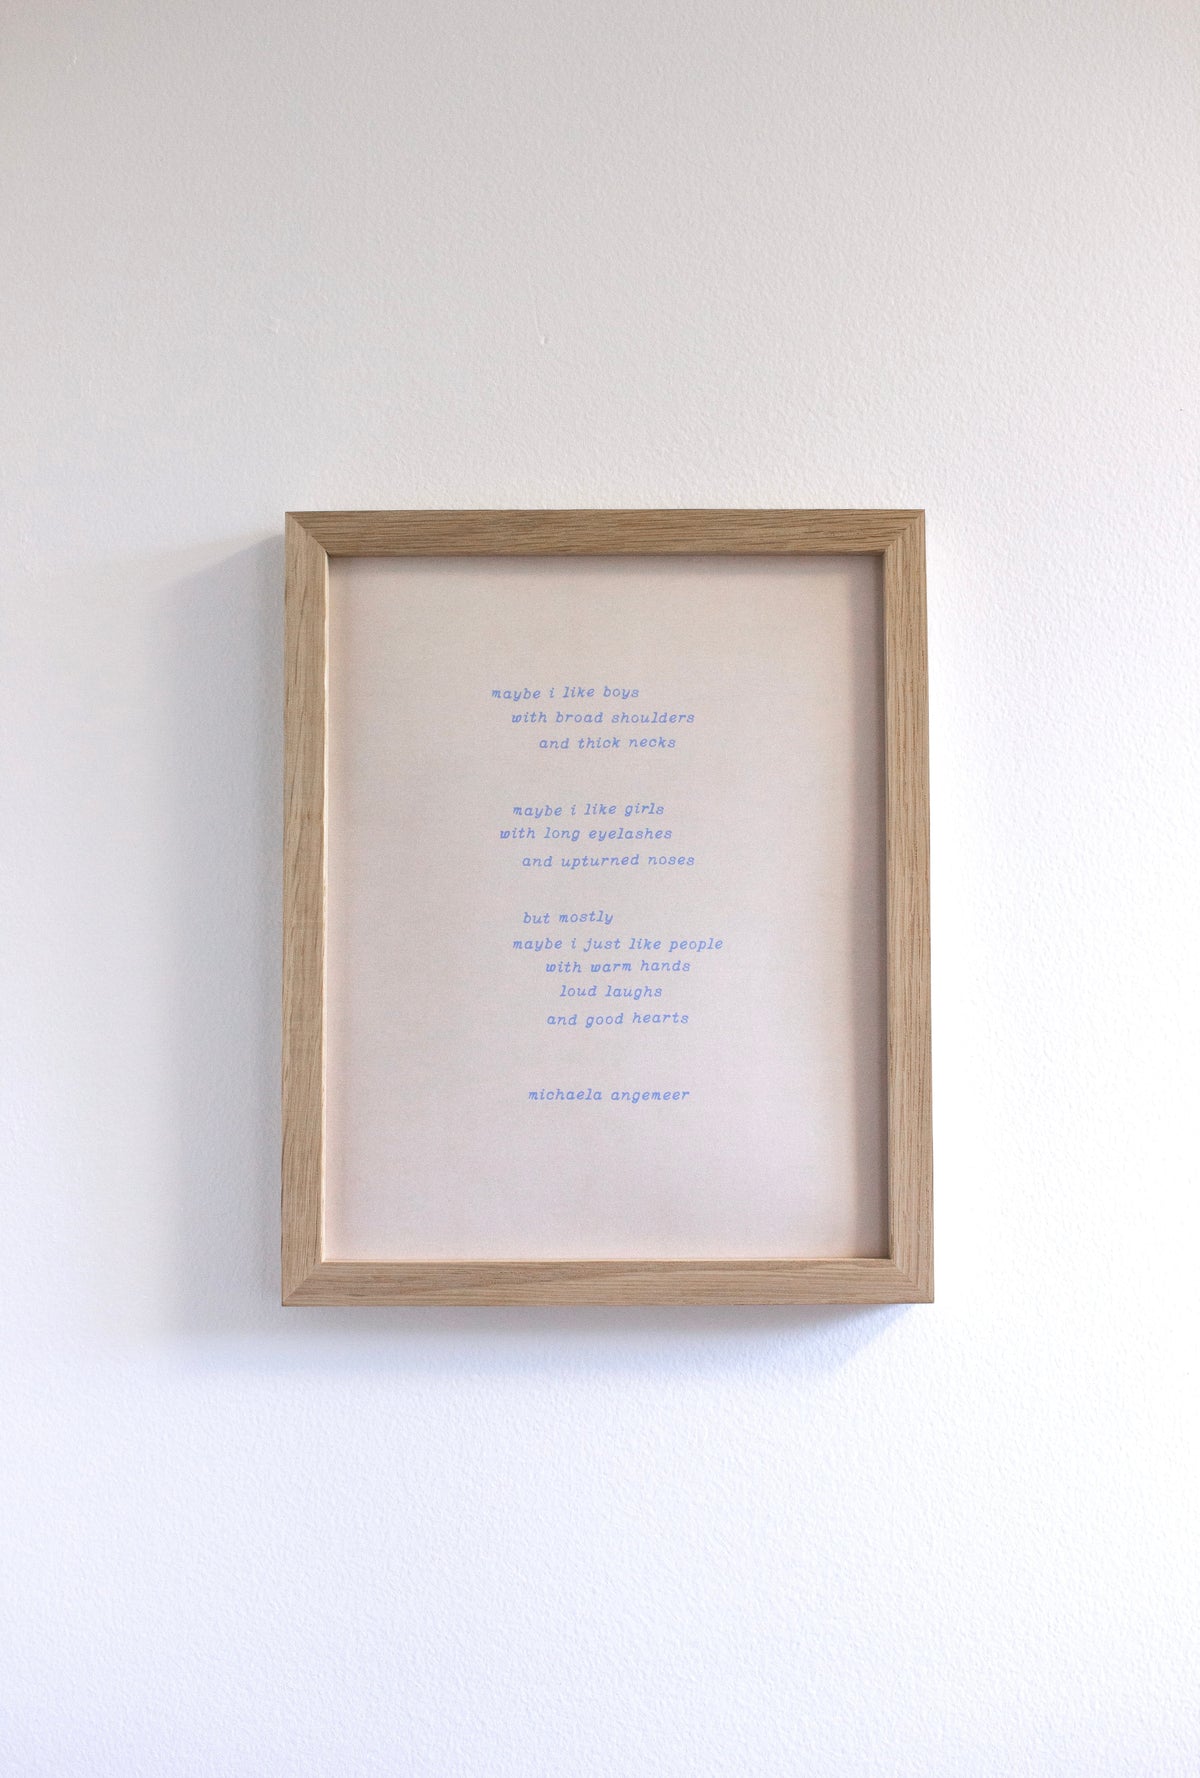 maybe i like boys
with broad shoulders
and thick necks
maybe i like girls
with long eyelashes
and upturned noses
but mostly
maybe i just like people
with warm hands
loud laughs
and good hearts
michaela angemeer